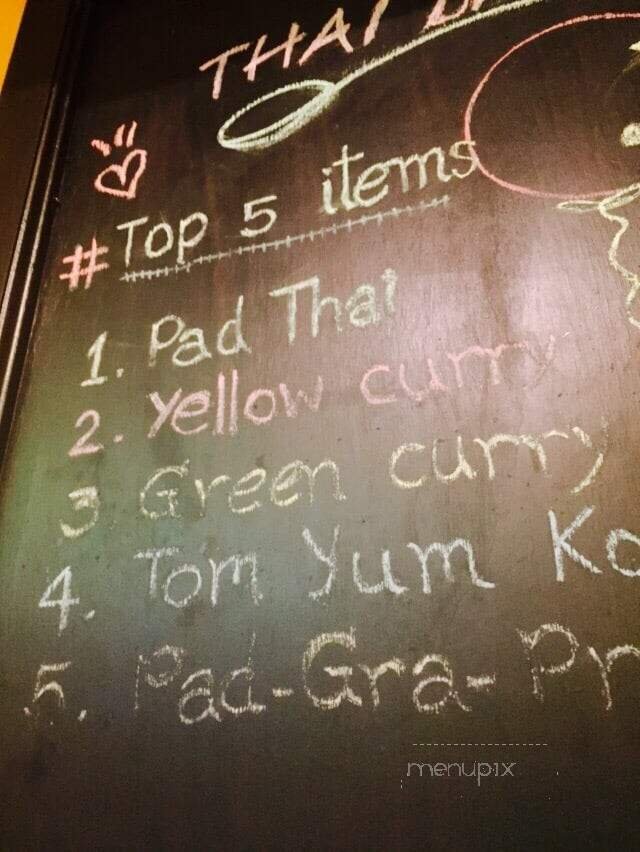 THAI
# Top 5 items
1. Pad Thai
2. Yellow curry
3 Green curry
4. Tom Yum Ko
5. Pad-Gra-Pr
menupix